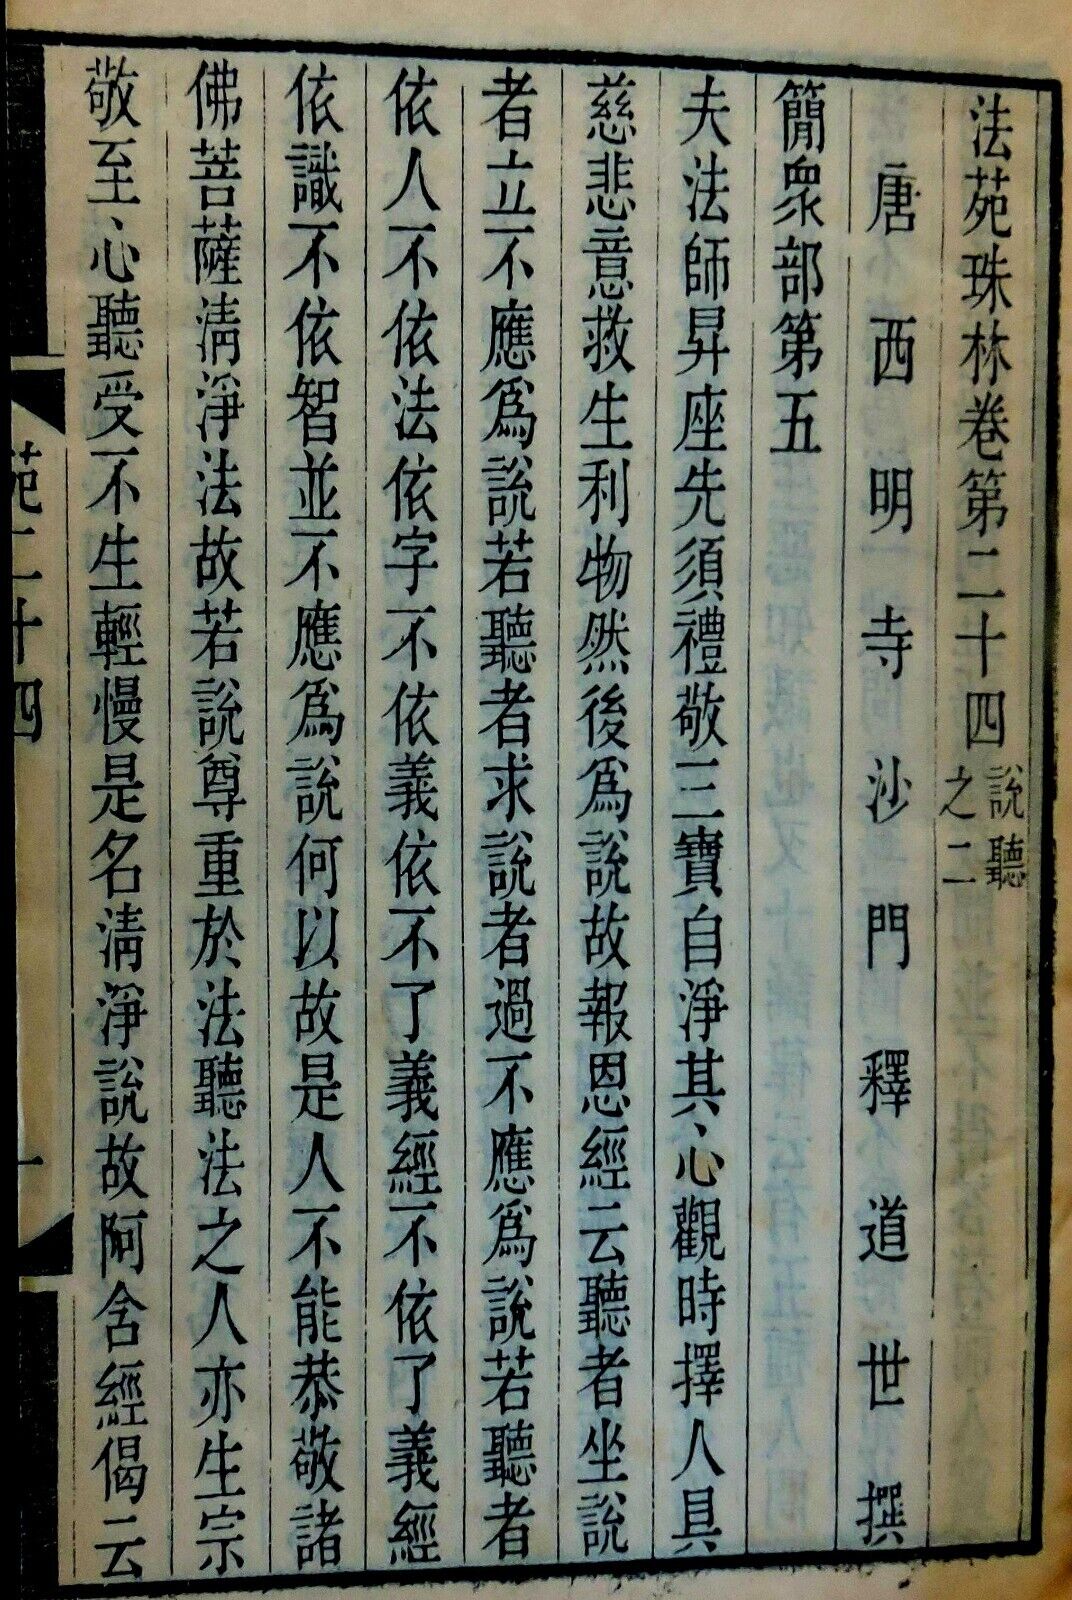 法苑珠林卷第二十四 說聽之二
唐西明寺沙門釋道世撰
簡衆部第五
夫法師昇座先須禮敬三寶自淨其心觀時擇人具
慈悲意救生利物然後爲說故報恩經云聽者坐說
者立不應爲說若聽者求說者過不應爲說若聽者
依人不依法依字不依義依不了義經不依了義經
依識不依智並不應爲說何以故是人不能恭敬諸
佛菩薩清淨法故若說尊重於法聽法之人亦生宗
敬至心聽受不生輕慢是名清淨說故阿含經偈云
苑二十四
一